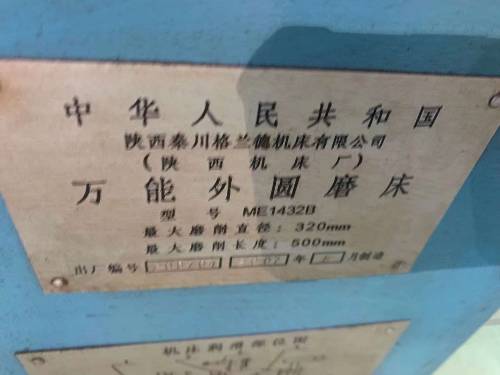 中华人民共和国
陕西秦川格兰德机床有限公司
(陕西机床厂)
万能外圆磨床
型号 ME1432B
最大磨削直径:320mm
最大磨削长度:500mm
出厂编号 年 月制造
机床润滑部位图